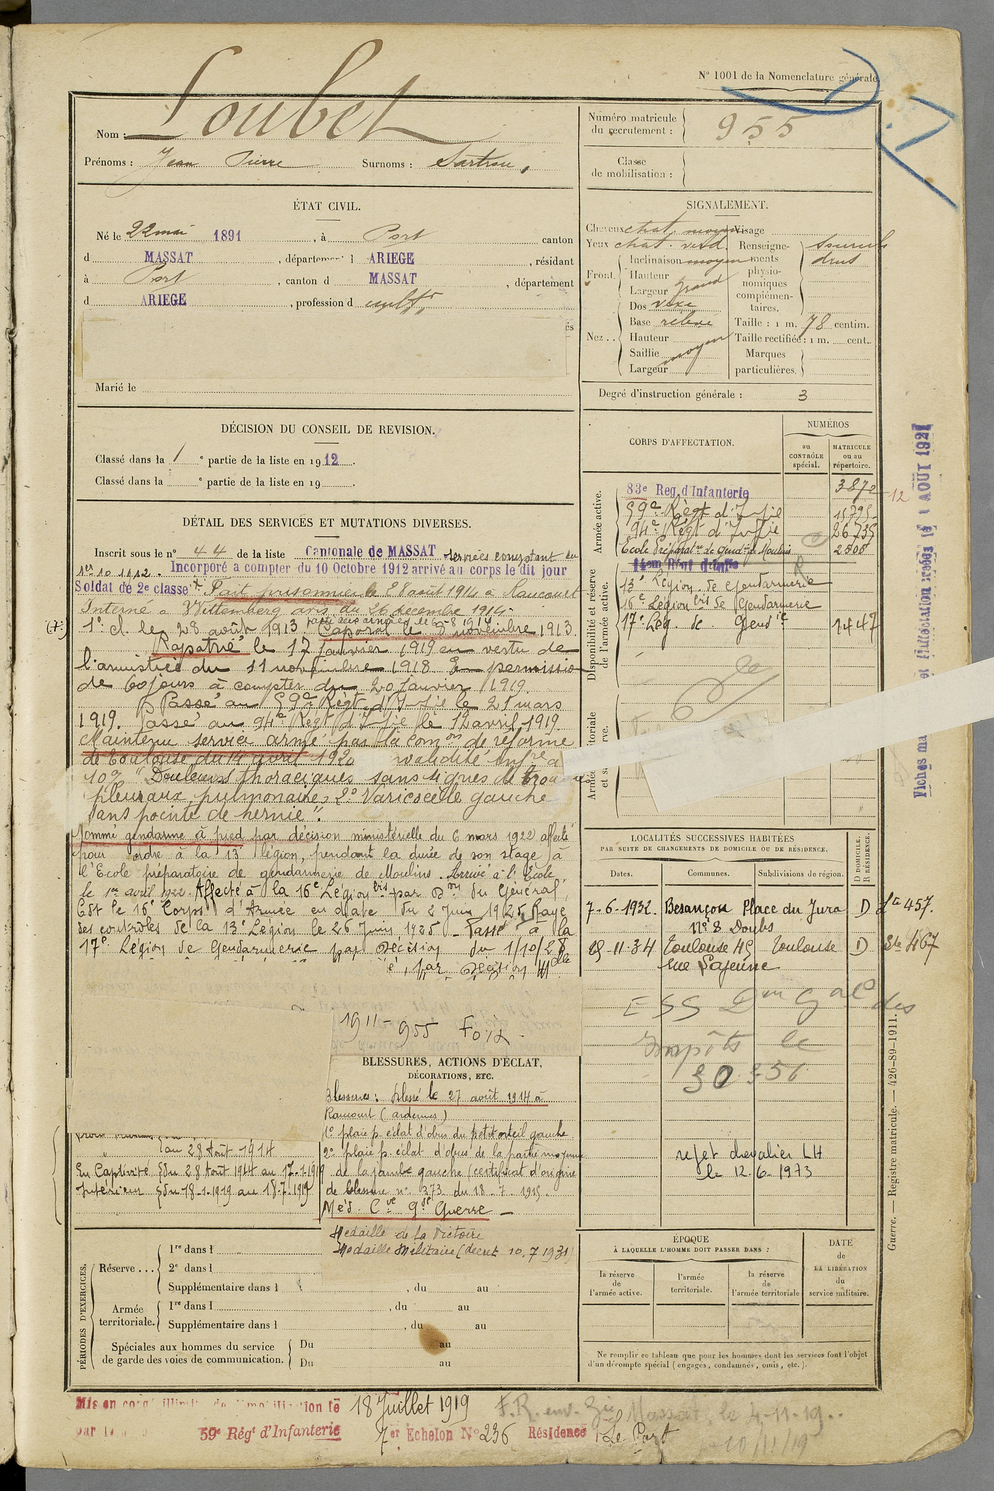 N° 1001 de la Nomenclature générale.
Nom : Loubet
Prénoms : Jean Pierre Surnoms : Sartrou,
Numéro matricule du recrutement : 955
Classe de mobilisation :
ÉTAT CIVIL.
Né le 22 mai 1891, à Port canton
d MASSAT, département d ARIEGE, résidant
à Port, canton d MASSAT, département
d ARIEGE, profession d cultr,
Marié le
SIGNALEMENT.
Cheveux chat. moyen Visage
Yeux chat. verd. Renseignements physionomiques complémentaires. Sourcils drus
Front. Inclinaison moyen
Hauteur
Largeur grand
Nez... Dos vexe
Base relevé
Hauteur
Saillie moyen
Largeur
Taille : 1 m. 78 centim.
Taille rectifiée : 1 m. cent.
Marques particulières.
Degré d'instruction générale : 3
DÉCISION DU CONSEIL DE REVISION.
Classé dans la 1 e partie de la liste en 1912.
Classé dans la e partie de la liste en 19
DÉTAIL DES SERVICES ET MUTATIONS DIVERSES.
Inscrit sous le n° 44 de la liste Cantonale de MASSAT services comptant du
1er 10 1912. Incorporé à compter du 10 Octobre 1912 arrivé au corps le dit jour
Soldat de 2e classe Fait prisonnier le 28 août 1914 à Raucourt
Interné à Wittemberg avis du 26 décembre 1914.
1e cl. le 28 août 1913. Caporal le 8 novembre 1913.
Rapatrié le 17 janvier 1919 en vertu de
l'armistice du 11 novembre 1918. En permission
de 60 jours à compter du 20 janvier 1919.
Passé au 59e Regt d'Inf-ie le 21 mars
1919. Passé au 94e Regt d'Inf-ie le 12 avril 1919
Maintenu service armé par la Comon de réforme
de Toulouse du 14 avril 1920 validité infre à
10% "Douleurs thoraciques sans signes de
pleuraux, pulmonaire, 2° Varicocelle gauche
sans pointe de hernie".
Nommé gendarme à pied par décision ministérielle du 6 mars 1922 affecté
pour ordre à la 13e légion, pendant la durée de son stage à
l'Ecole préparatoire de gendarmerie de Moulins. Arrivé à l'Ecole
le 1er avril 1922. Affecté à la 16e Légion bis par Don du Général
Cdt le 16e Corps d'Armée en date du 2 Juin 1925. Rayé
des contrôles de la 13e Légion le 26 Juin 1925 - Passé à la
17e Légion de Gendarmerie par Décision du 1/10/28
par Décision Mlle
1911 - 955 Foix -
CORPS D'AFFECTATION.
NUMÉROS
au CONTRÔLE spécial.
MATRICULE ou au répertoire.
Armée active.
83e Reg. d'Infanterie 3872 12
59e Regt d'Inf-ie
94e Regt d'Inf-ie 26735
Ecole Préparatre de Gendie de Moulins 2808
Disponibilité et réserve de l'armée active.
13e Légion de Gendarmerie
16e Légion bis de Gendarmerie
17e Lég. de Gendie 1447
Fiches 1 AOUT 1921
LOCALITÉS SUCCESSIVES HABITÉES
PAR SUITE DE CHANGEMENTS DE DOMICILE OU DE RÉSIDENCE.
Dates. Communes. Subdivisions de région. D DOMICILE. R RÉSIDENCE.
7-6-1932. Besançon Place du Jura D 457.
N° 8 Doubs
25-11-34 Toulouse Toulouse D 467
Rue Lajeunie
ESS Don Gale des
Impôts le
30 3 56
rejet chevalier LH
le 12.6.1973
BLESSURES, ACTIONS D'ÉCLAT,
DÉCORATIONS, ETC.
Blessures : blessé le 27 août 1914 à
Raucourt (ardennes)
1° plaie p. éclat d'obus du petit orteil gauche
2° plaie p. éclat d'obus de la partie moyenne
de la jambe gauche (certificat d'origine
de blessure n° 373 du 18.7.1919.
Méd. Cve Gde Guerre -
Médaille de la Victoire
Médaille Militaire (décret 10.7.1931)
au 28 Août 1914
En Captivité du 28 Août 1914 au 17-1-1919
Intérieur du 18-1-1919 au 18-7-1919
PÉRIODES D'EXERCICES.
Réserve... 1re dans l
2e dans l
Supplémentaire dans l , du au
Armée territoriale. 1re dans l , du au
Supplémentaire dans l , du au
Spéciales aux hommes du service de garde des voies de communication. Du au
Du au
ÉPOQUE
À LAQUELLE L'HOMME DOIT PASSER DANS :
la réserve de l'armée active.
l'armée territoriale.
la réserve de l'armée territoriale.
DATE de LA LIBÉRATION du service militaire.
Ne remplir ce tableau que pour les hommes dont les services font l'objet
d'un décompte spécial (engagés, condamnés, omis, etc.).
Guerre. — Registre matricule. — 426-89-1911.
Mis en congé illimité de démobilisation le 18 Juillet 1919
par le 59e Régt d'Infanterie 7er Echelon N° 236 Résidence Le Port
F.R. env. Massat, le 4-11-19.
10/11/19